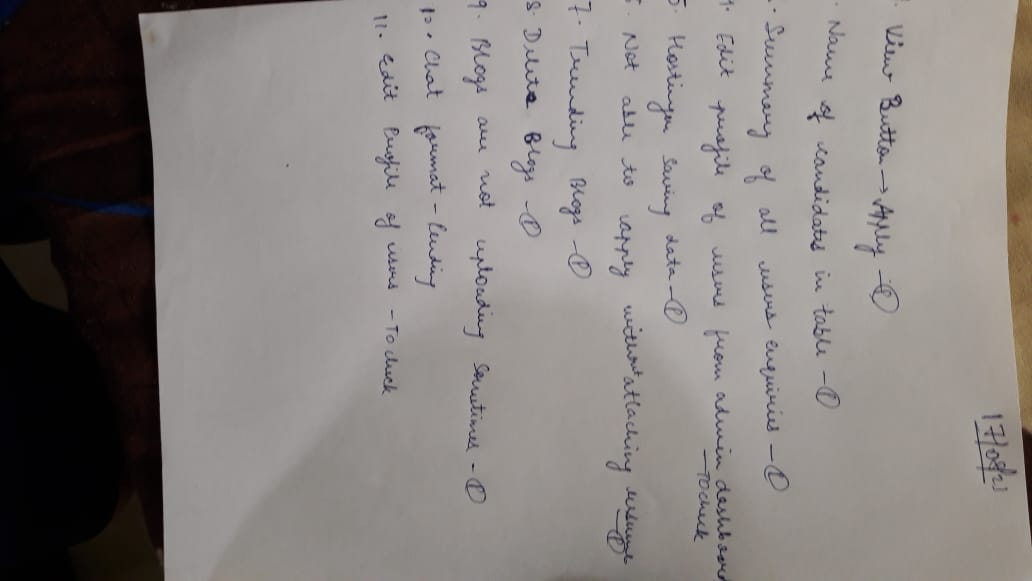 17/08/21
1. View Button → Apply - Ⓟ
. Name of candidates in table - Ⓟ
. Summary of all users enquiries - Ⓟ
4. Edit profile of users from admin dashboard
- To check
5. Saving data - Ⓟ
6. Not able to apply without attaching resume
- Ⓟ
7. Trending Blogs - Ⓟ
8. Delete Blogs - Ⓟ
9. Blogs are not uploading sometimes - Ⓟ
10. Chat format - Pending
11. Edit Profile of users - To check